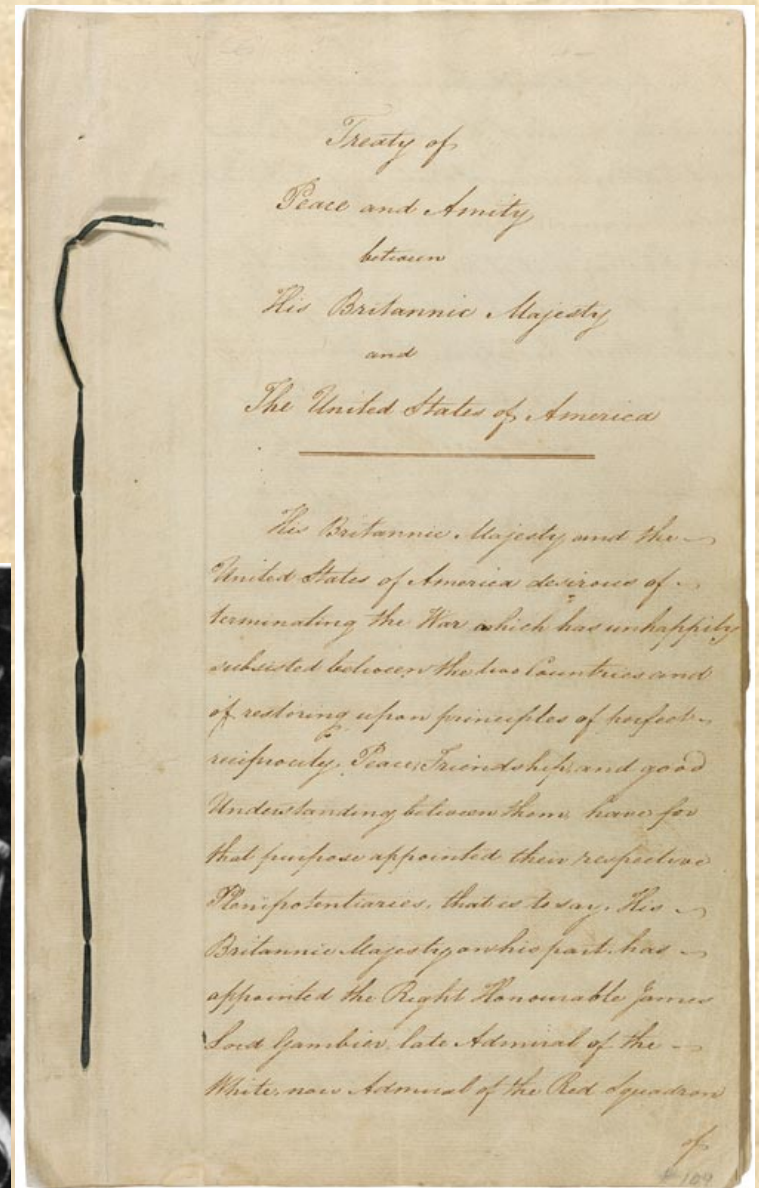 Treaty of
Peace and Amity
between
His Britannic Majesty
and
The United States of America
His Britannic Majesty and the
United States of America desirous of
terminating the War which has unhappily
subsisted between the two Countries and
of restoring upon principles of perfect
reciprocity, Peace, Friendship, and good
Understanding between them, have for
that purpose appointed their respective
Plenipotentiaries, that is to say, His
Britannic Majesty on his part has
appointed the Right Honourable James
Lord Gambier, late Admiral of the
White, now Admiral of the Red Squadron
of
109